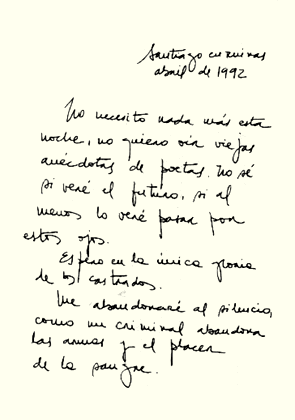 Santiago en ruinas
abril de 1992
No necesito nada más esta
noche, no quiero oír viejas
anécdotas de poetas. No sé
si veré el futuro, si al
menos lo veré pasar por
estos ojos.
Espero en la única gloria
de los castrados.
Me abandonaré al silencio,
como un criminal abandona
las armas y el placer
de la sangre.